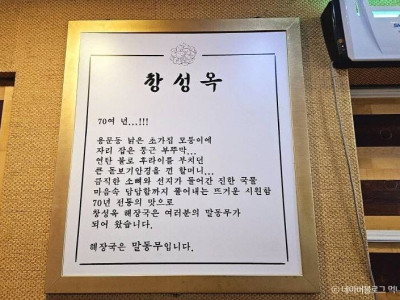 창성옥
70여 년...!!!
용문동 낡은 초가집 모퉁이에
자리 잡은 둥근 부뚜막...
연탄 불로 후라이를 부치던
큰 돋보기안경을 낀 할머니...
큼직한 소뼈와 선지가 들어간 진한 국물
마음속 답답함까지 풀어내는 뜨거운 시원함
70년 전통의 맛으로
창성옥 해장국은 여러분의 말동무가
되어 왔습니다.
해장국은 말동무입니다.
ⓒ 네이버블로그 먹니